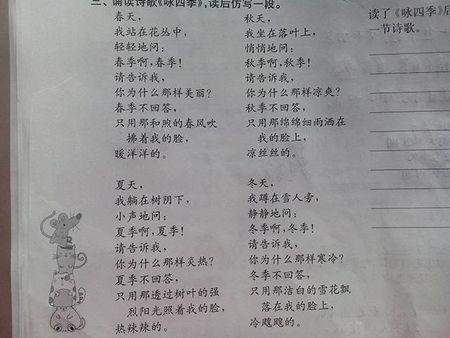 三、诵读诗歌《咏四季》,读后仿写一段。
春天,
我站在花丛中,
轻轻地问:
春季啊,春季!
请告诉我,
你为什么那样美丽?
春季不回答,
只用那和煦的春风吹
拂着我的脸,
暖洋洋的。
夏天,
我躺在树阴下,
小声地问:
夏季啊,夏季!
请告诉我,
你为什么那样炎热?
夏季不回答,
只用那透过树叶的强
烈阳光照着我的脸,
热辣辣的。
秋天,
我坐在落叶上,
悄悄地问:
秋季啊,秋季!
请告诉我,
你为什么那样凉爽?
秋季不回答,
只用那绵绵细雨洒在
我的脸上,
凉丝丝的。
冬天,
我蹲在雪人旁,
静静地问:
冬季啊,冬季!
请告诉我,
你为什么那样寒冷?
冬季不回答,
只用那洁白的雪花飘
落在我的脸上,
冷飕飕的。
读了《咏四季》后
一节诗歌。